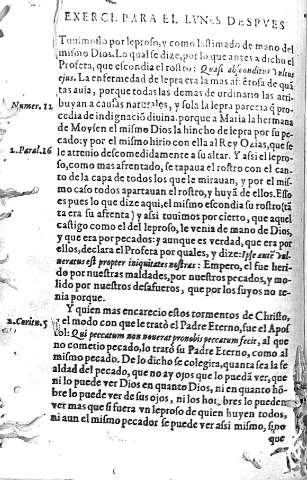 EXERCI. PARA EL LVNES DESPVES
Tuuimoslo por leproso, y como lastimado de mano del
mismo Dios. Lo qual se dize, por lo que antes a dicho el
Profeta, que escondia el rostro: Quasi absconditus vultus
ejus. La enfermedad de lepra era la mas afrẽtosa de quã
tas auia, porque todas las demas de ordinario las atri-
Numer. 12
buyan a causas naturales, y sola la lepra parecia q̃ pro-
cedia de indignació diuina. porque a Maria la hermana
de Moysen el mismo Dios la hincho de lepra por su pe-
cado: y por el mismo hirio con ella al Rey Ozias, que se
2. Paral. 26
le atreuio descomedidamente a su altar. Y assi el lepro-
so, como mas afrentado, se tapaua el rostro con el can-
to de la capa de todos los que le mirauan, y por el mis-
mo caso todos apartauan el rostro, y huyã de ellos. Esso
es pues lo que dize aqui, el mismo escondia su rostro (tã
ta era su afrenta) y assi tuuimos por cierto, que aquel
castigo como el del leproso, le venia de mano de Dios,
y que era por pecados: y aunque es verdad, que era por
ellos, declara el Profeta por quales, y dize: Ipse autẽ vul-
neratus est propter iniquitates nostras: Empero, el fue heri-
do por nuestras maldades, por nuestros pecados, y mo-
lido por nuestros desafueros, que por los suyos no te-
nia porque.
Y quien mas encarecio estos tormentos de Christo,
y el modo con que le tratò el Padre Eterno, fue el Apos
2. Corint. 5
tol: Qui peccatum non nouerat pro nobis peccatum fecit, al que
no cometio pecado, lo tratò su Padre Eterno, como al
mismo pecado. De lo dicho se colegira, quanta sea la fe
aldad del pecado, que no ay ojos que lo puedã ver, que
ni lo puede ver Dios en quanto Dios, ni en quanto hõ-
bre lo puede ver de sus ojos, ni los hombres lo pueden
ver mas que si fuera vn leproso de quien huyen todos,
ni aun el mismo pecador se puede ver assi mismo, sino
que